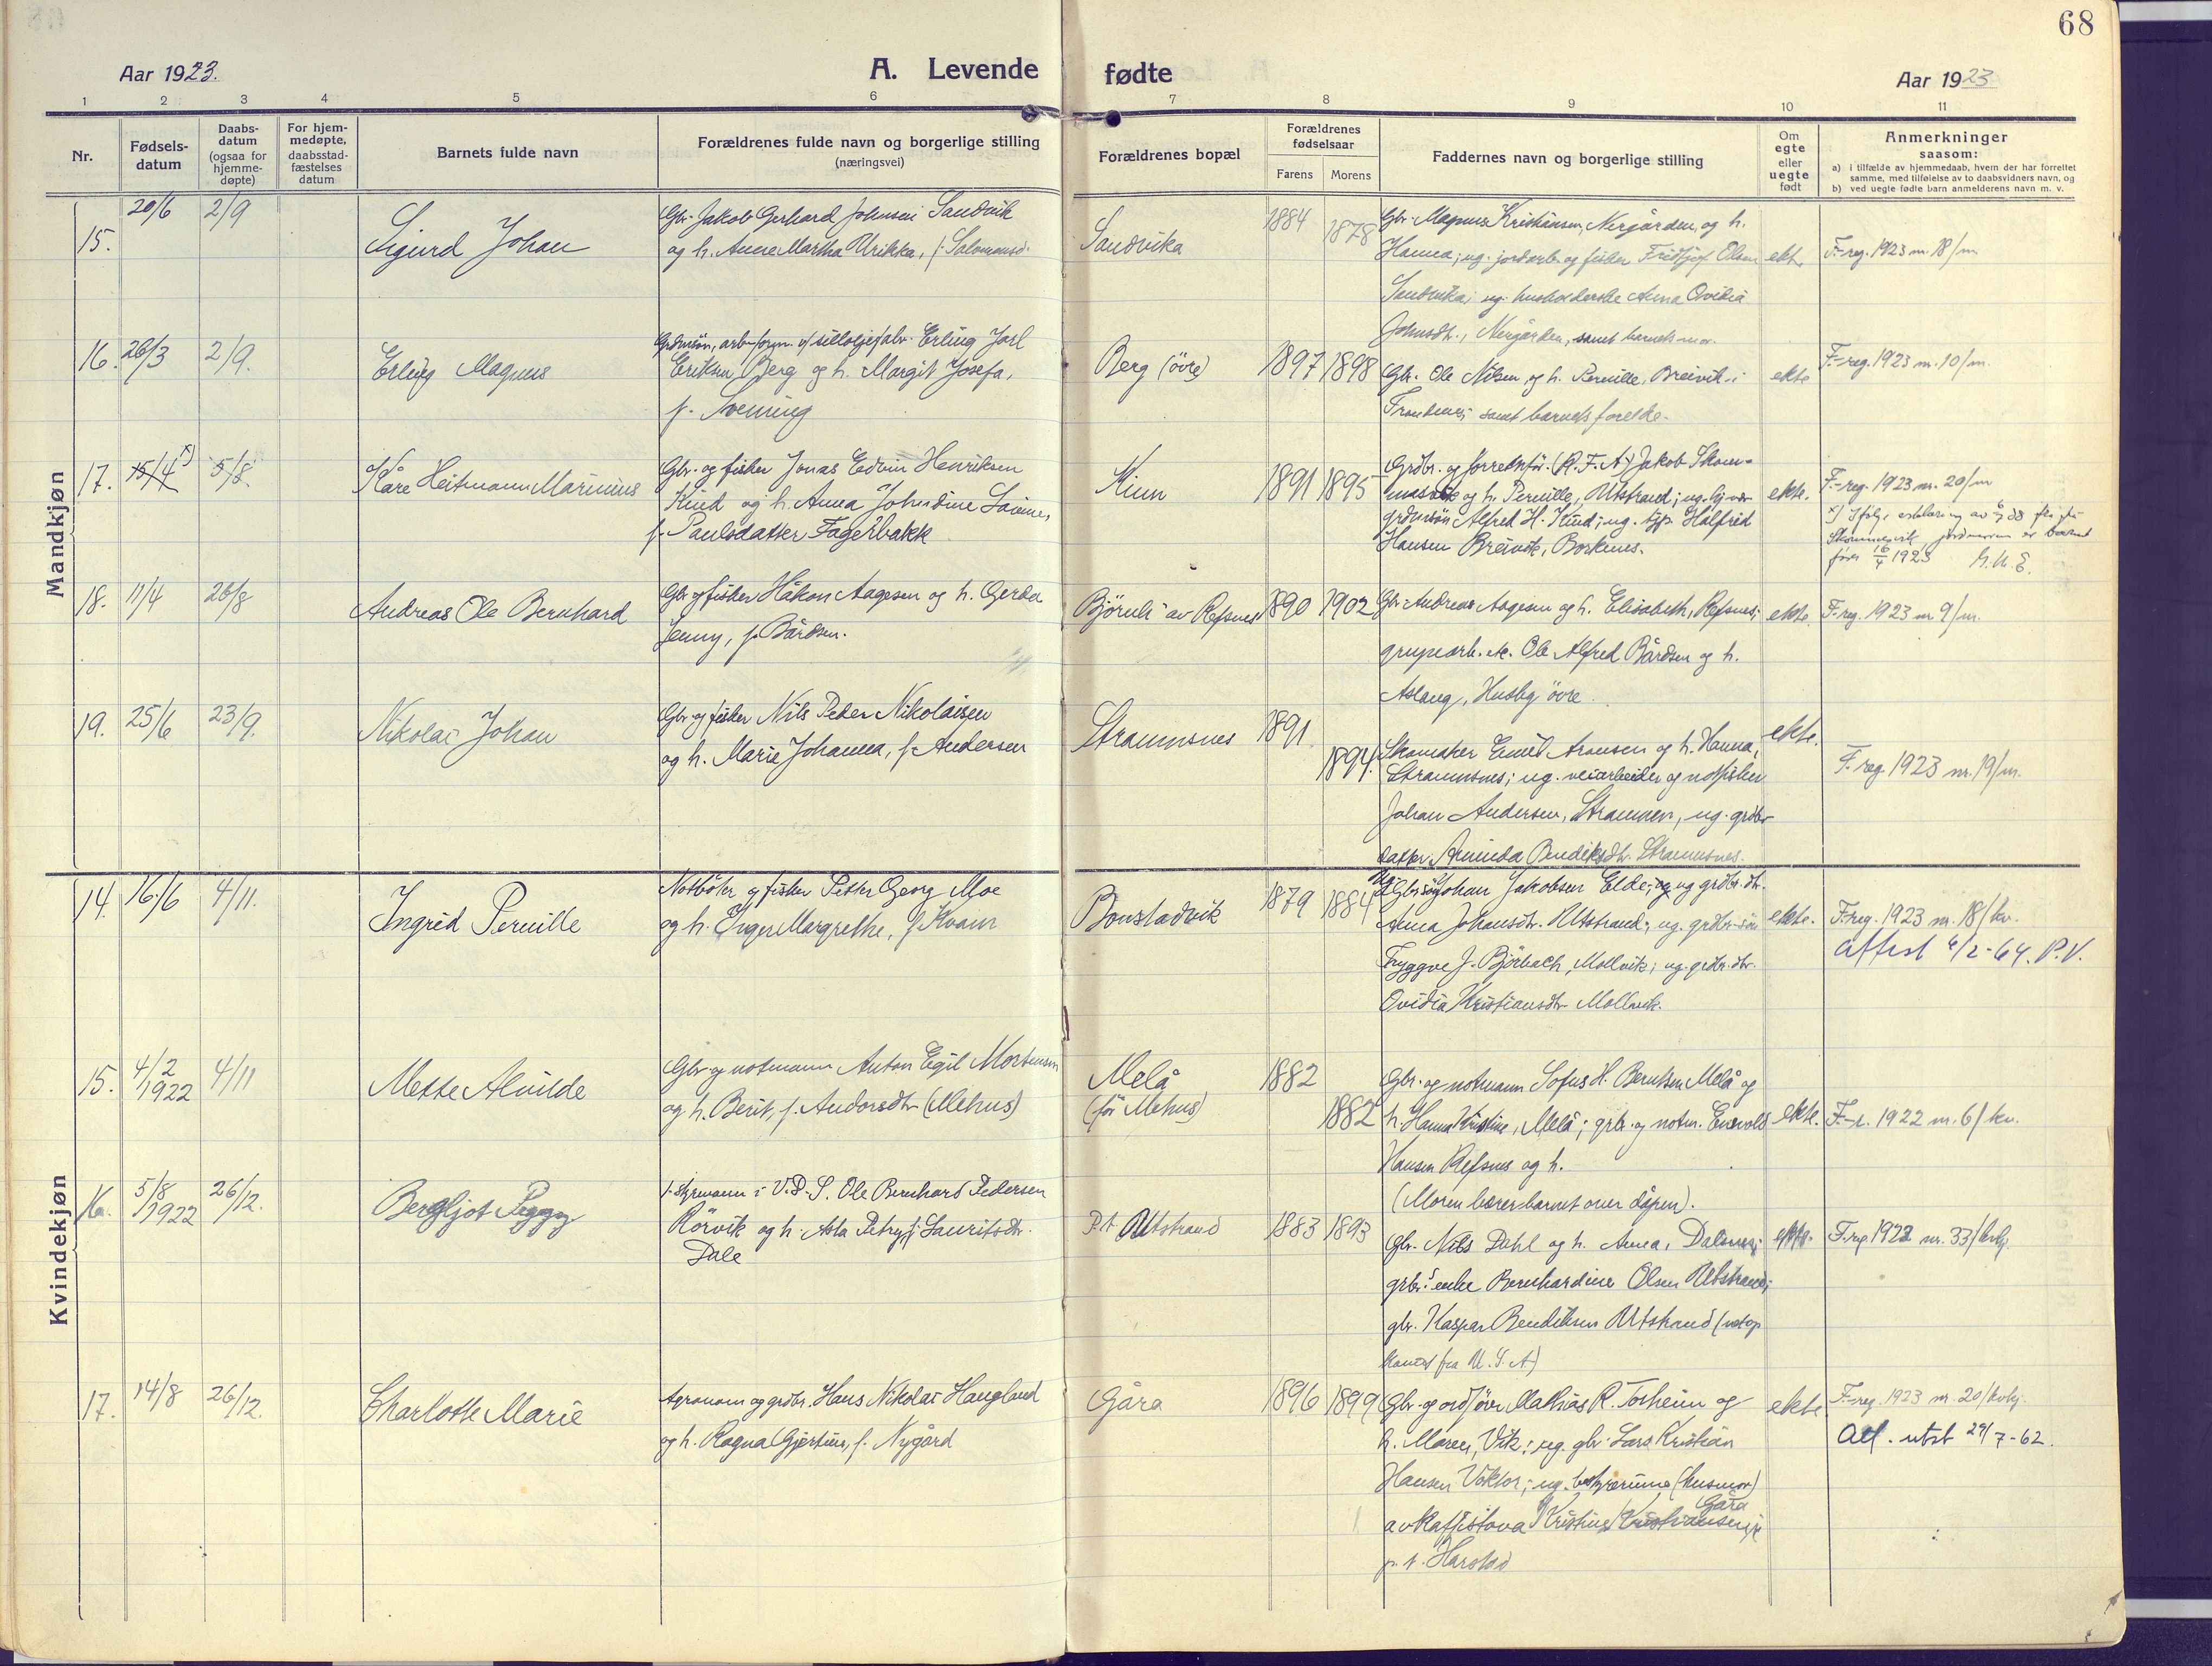 68
Aar 1923.
A. Levende fødte
Aar 1923
1 2 3 4 5 6 7 8 9 10 11
Nr.
Fødsels-
datum
Daabs-
datum
(ogsaa for
hjemme-
døpte)
For hjem-
medøpte,
daabsstad-
fæstelses
datum
Barnets fulde navn
Forældrenes fulde navn og borgerlige stilling
(næringsvei)
Forældrenes bopæl
Forældrenes
fødselsaar
Farens Morens
Faddernes navn og borgerlige stilling
Om
egte
eller
uegte
født
Anmerkninger
saasom:
a) i tilfælde av hjemmedaab, hvem der har forrettet
samme, med tilføielse av to daabsvidners navn, og
b) ved uegte fødte barn anmelderens navn m. v.
Mandkjøn
15.
20/6
2/9
Sigurd Johan
Gbr. Jakob Gerhard Johnsen Sandvik
og h. Anna Martha Ulrikka, f. Salomonsd.
Sandvika
1884
1878
Gbr. Magnus Kristiansen, Nergården, og h.
Hanna; ug. jordarb. og fisker Fridtjof Olsen
Sandvika; ug. husholderske Anna Ovidia
Johnsdtr., Nergården, samt barnets mor.
ekte
F.-reg. 1923 nr. 18/m.
16.
26/3
2/9.
Erling Magnus
Erling Jarl
Eriksen Berg og h. Margit Josefa,
f. Svenning
Berg (övre)
1897
1898
Gbr. Ole Nilsen og h. Pernille, Breivik i
Trondenes samt barnets foreldre.
ekte
F-reg. 1923 nr. 10/m.
17.
15/4 x)
5/8.
Kåre Heitmann Marinius
Gbr. og fisker Jonas Edvin Henriksen
Kind og h. Anna Johndine Lovise,
f. Paulsdatter Fagerbakk
Kinn
1891
1895
Grdbr. og (K. F. A) Jakob
og h. Pernille, Utstrand; ug.
grdmsön Alfred H. Kind; ug. tjp. Halfrid
Hansen Breivik, Borkenes.
ekte.
F.-reg. 1923 nr. 20/m
x) Ifölge erklæring av
er barnet
født 16/4 1923
18.
11/4
26/8
Andreas Ole Bernhard
Gbr og fisker Håkon Aagesen og h. Gerda
Jenny, f. Bårdsen.
Björnli av Refsnes
1890
1902
Gbr. Andreas Aagesen og h. Elisabeth, Refsnes;
grupearb. Ole Alfred Bårdsen og h.
Aslaug, Husby övre.
ekte.
F.-reg. 1923 nr 9/m.
19.
25/6
23/9.
Nikolai Johan
Gbr og fisker Nils Peder Nikolaisen
og h. Marie Johanna, f. Andersen
Straumsnes
1891
1894.
Skomaker Emil Aronsen og h. Hanna,
Straumsnes; ug. veiarbeider og notfisker
Johan Andersen, Straumen, ug. grdbr
datter Arminda Bendiksdtr. Straumsnes.
ekte.
F. reg. 1923 nr. 19/m.
Kvindekjøn
14.
16./6
4/11.
Ingrid Pernille
Notböter og fisker Peter Georg Moe
og h. Inger Margrethe, f. Kvam
Bonstadvik
1879
1884
Ug. Gbrsön Johan Jakobsen Elde; og ug grdbr. dtr.
Anna Johansdtr. Utstrand; ug. grdbr. sön
Tryggve J. Björbach, Mollvik; ug. grdbr. dtr.
Ovidia Kristiansdtr Mollvik.
ekte.
F.reg. 1923 nr. 18/kv.
Attest 4/2-64. P.V.
15.
4/2
1922
4/11
Mette Alvilde
Gbr og notmann Anton Egil Mortensen
og h. Berit, f. Andorsdtr (Mehus)
Melå
(för Mehus)
1882
1882
Gbr. og notmann Sofus H. Berntsen Melå og
h. Hanna Kristine, Melå; grbr. og notm. Enevold
Hansen Refsnes og h.
(Moren bærer barnet over dåpen).
ekte.
F.-r. 1922 nr. 6/kv.
16.
5/8
1922
26/12.
Bergljot Peggy
f. styrmann i V.D.S. Ole Bernhard Pedersen
Rörvik og h. Asta Petry f. Lauritsdtr.
Dale
P.t. Utstrand
1883
1893
Gbr. Nils Dahl og h. Anna, Dalsnes;
grbr.s enke Bernhardine Olsen Utstrand;
gbr. Kaspar Bendiksen Utstrand (netop
kommet fra U. S. A)
ekte.
F.reg. 1922 nr. 33/kvkj.
17.
14/8
26/12.
Charlotte Marie
Agronom og grdbr. Hans Nikolai Haugland
og h. Ragna Gjertine, f. Nygård
Gåra
1896
1899
Gbr. og ordfører Mathias R. Torheim og
h. Maren, Vik; ug. gbr. Lars Kristian
Hansen Voktor; ug. bestyrerinne (husmor)
av Kaffistova Kristine Kristiansen Gåra
p. t. Harstad
ekte
F-reg. 1923 nr. 20/kvkj.
Att. utst 24/7-62.